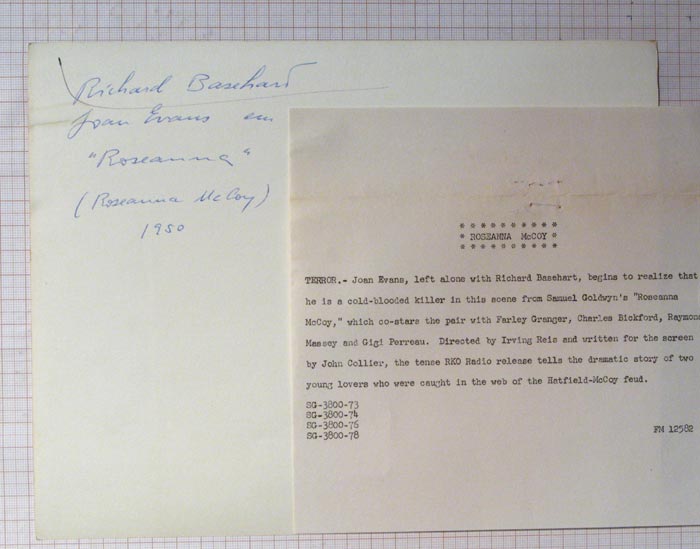 Richard Basehart
Joan Evans em
"Roseanna"
(Roseanna McCoy)
1950
* * * * * * * * * *
* ROSEANNA McCOY *
* * * * * * * * * *
TERROR.- Joan Evans, left alone with Richard Basehart, begins to realize that
he is a cold-blooded killer in this scene from Samuel Goldwyn's "Roseanna
McCoy," which co-stars the pair with Farley Granger, Charles Bickford, Raymond
Massey and Gigi Perreau. Directed by Irving Reis and written for the screen
by John Collier, the tense RKO Radio release tells the dramatic story of two
young lovers who were caught in the web of the Hatfield-McCoy feud.
SG-3800-73
SG-3800-74
SG-3800-76
SG-3800-78
FM 12582